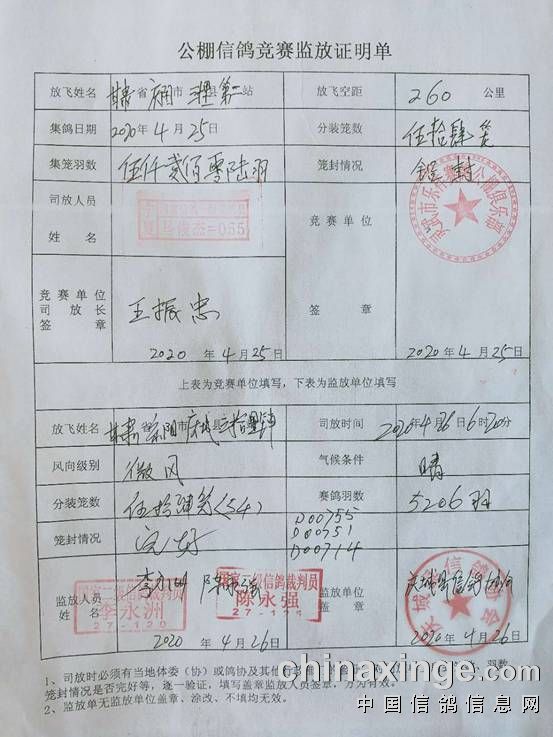 公棚信鸽竞赛监放证明单
放飞姓名 甘肃省 市 县 第二站 放飞空距 260 公里
集鸽日期 2020年4月25日 分装笼数 伍拾肆笼
集笼羽数 伍仟贰佰零陆羽 笼封情况 铅封
司放人员 姓名 =055 竞赛单位
竞赛单位 司放长 签章 王振忠 签章
2020年4月25日 2020年4月25日
上表为竞赛单位填写，下表为监放单位填写
放飞姓名 甘肃省庆阳市庆城县 司放时间 2020年4月26日6时20分
风向级别 微风 气候条件 晴
分装笼数 伍拾肆笼(54) 赛鸽羽数 5206羽
笼封情况 完好 D00755
D00751
D00714
监放人员 姓名 李永洲 27-120 陈永强 陈永强 监放单位 签章
2020年4月26日 2020年4月26日
1、司放时必须有当地体委（协）或鸽协及其他 羽数
笼封情况是否完好等，逐一验证，填写盖章监放人员签章，方为有效。
2、监放单无监放单位盖章、涂改、不填均无效。
chinaxinge.com
中国信鸽信息网